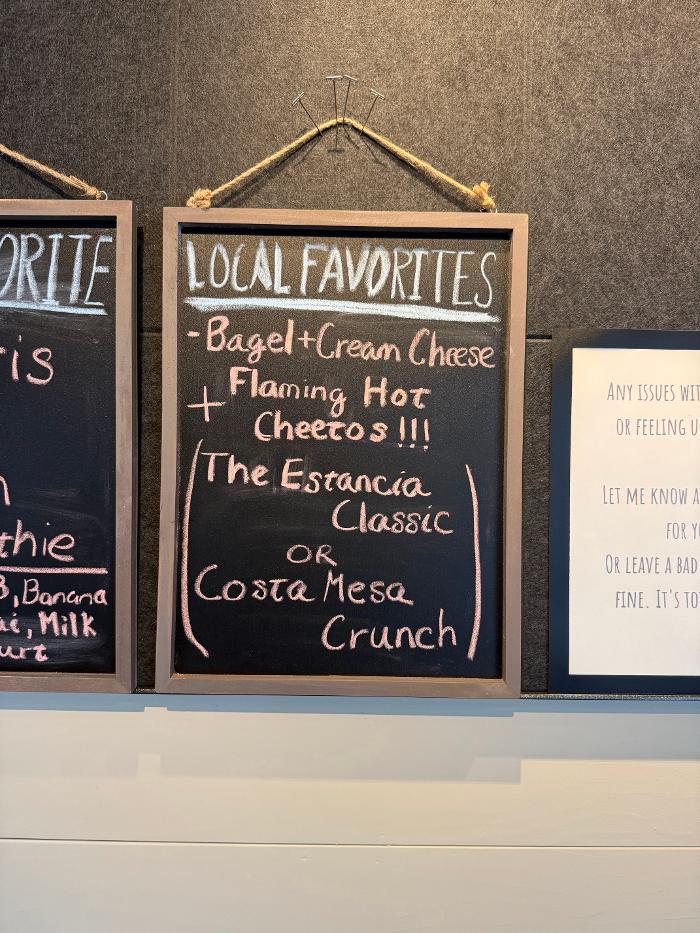 ORITE
ris
thie
B, Banana
Milk
urt
LOCAL FAVORITES
-Bagel+Cream Cheese
+ Flaming Hot
Cheetos!!!
(The Estancia
Classic
OR
Costa Mesa
Crunch)
ANY ISSUES WIT
OR FEELING U
LET ME KNOW A
FOR Y
OR LEAVE A BAD
FINE. IT'S TO